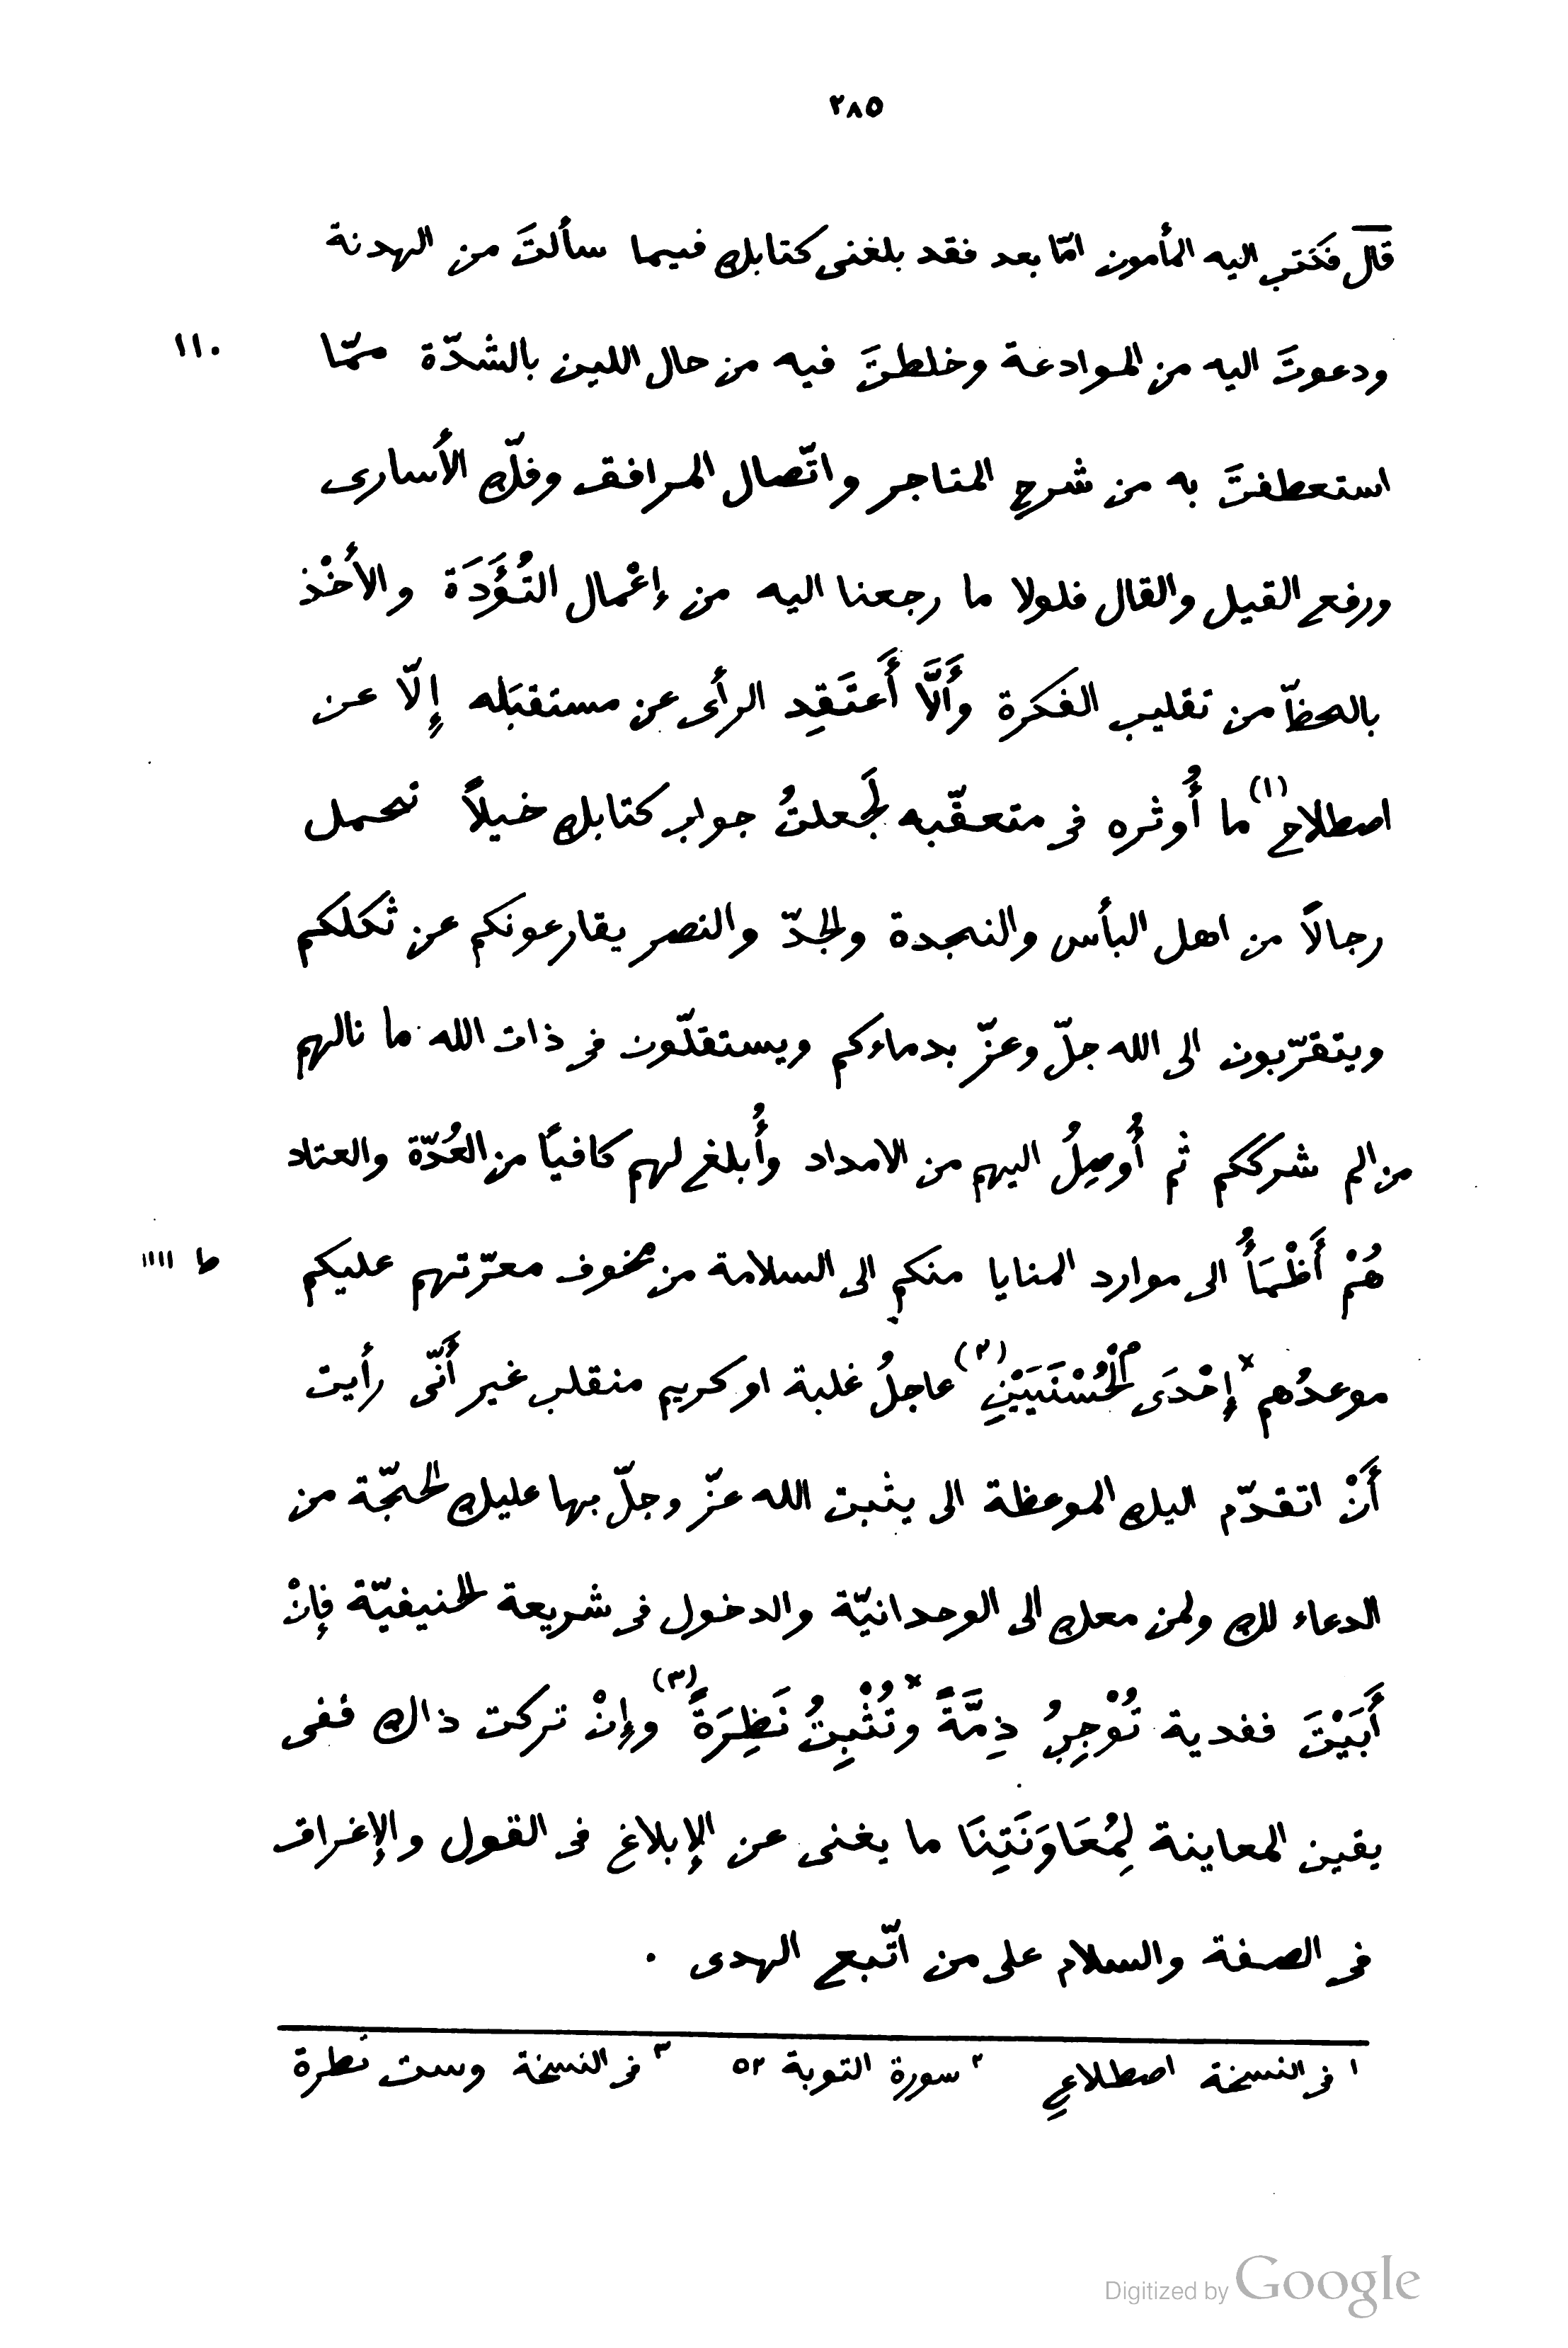 ٢٨٥
قال فكتب اليه المأمون امّا بعد فقد بلغنى كتابك فيما سألتَ من الهدنة
١١٠ ودعوتَ اليه من الموادعة وخلطتَ فيه من حال اللين بالشدّة ممّا
استعطفتَ به من شرحِ المتاجر واتّصال المرافق وفكّ الأسارى
ورفع القيل والقال فلولا ما رجعنا اليه من إعْمال التُؤَدَة والأخْذ
بالحظّ من تقليب الفكرة وأَلَّا أَعتَقِد الرأى عن مستقبَله إِلّا عن
اصطلاح(١) ما أُوثره فى متعقّبه لَجعلتُ جواب كتابك خيلاً تحمل
رجالاً من اهل البأس والنجدة والجدّ والنصر يقارعونكم عن ثكلكم
ويتقرّبون الى الله جلّ وعزّ بدماءكم ويستقلّون فى ذات الله ما نالهم
من الم شرككم ثم أُوصِلُ اليهم من الامداد وأُبلغ لهم كافيًا من العُدّة والعتاد
هُمْ أَظْمَأُ الى موارد المنايا منكم الى السلامة من مخوف معرّتهم عليكم ط ١١١١
موعدُهم * إِحْدَى الْحُسْنَيَيْنِ(٢) عاجلُ غلبة او كريم منقلب غير أَنّى رأيت
أَنْ اتقدّم اليك الموعظة الى يثبت الله عزّ وجلّ بها عليك الحجّة من
الدعاء لك ولمن معك الى الوحدانيّة والدخول فى شريعة الحنيفيّة فإنْ
أَبَيْتَ ففدية تُوْجِبُ ذِمَّةً * وتُثْبِتُ نَظِرَةً(٣) وإنْ تركت ذاك ففى
يقين المعاينة لِمُعَاوَنَتِنَا ما يغنى عن الإبلاغ فى القول والإغراق
فى الصفة والسلام على من اتّبع الهدى .
١ فى النسخة اصطلاعِ ٢ سورة التوبة ٥٢ ٣ فى النسخة وست نطرة
Digitized by Google